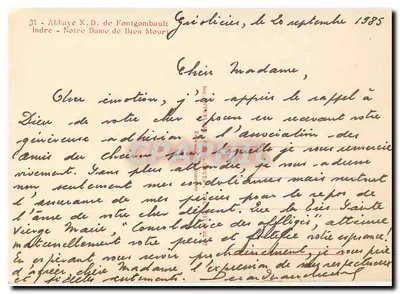 31 - Abbaye N.D. de Fontgombault
Indre - Notre Dame de Bien Mourir
le 20 septembre 1985
Chère Madame,
Avec émotion, j'ai appris le rappel à
Dieu de votre cher en recevant votre
généreuse adhésion à l'Association des
amis du de laquelle je vous remercie
vivement. Sans plus attendre, je vous adresse
non seulement mes condoléances mais surtout
l'assurance de mes prières pour le repos de
l'âme de votre cher défunt. Que la Très Sainte
Vierge Marie, "Consolatrice des affligés", atténue
maternellement votre peine et fortifie votre espérance!
En espérant vous revoir prochainement, je vous prie
d'agréer, chère Madame, l'expression de mes respectueux
et fidèles sentiments.